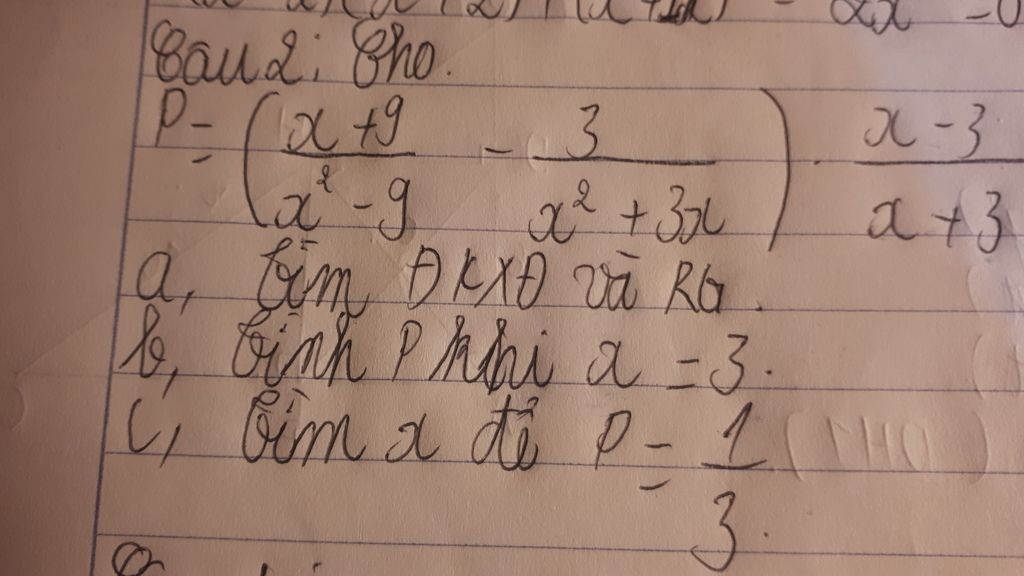 Câu 2: Cho.
P = (x + 9 / x² - 9 - 3 / x² + 3x) · x - 3 / x + 3
a, tìm ĐKXĐ và RG.
b, tính P khi x = 3.
c, tìm x để P = 1 / 3.